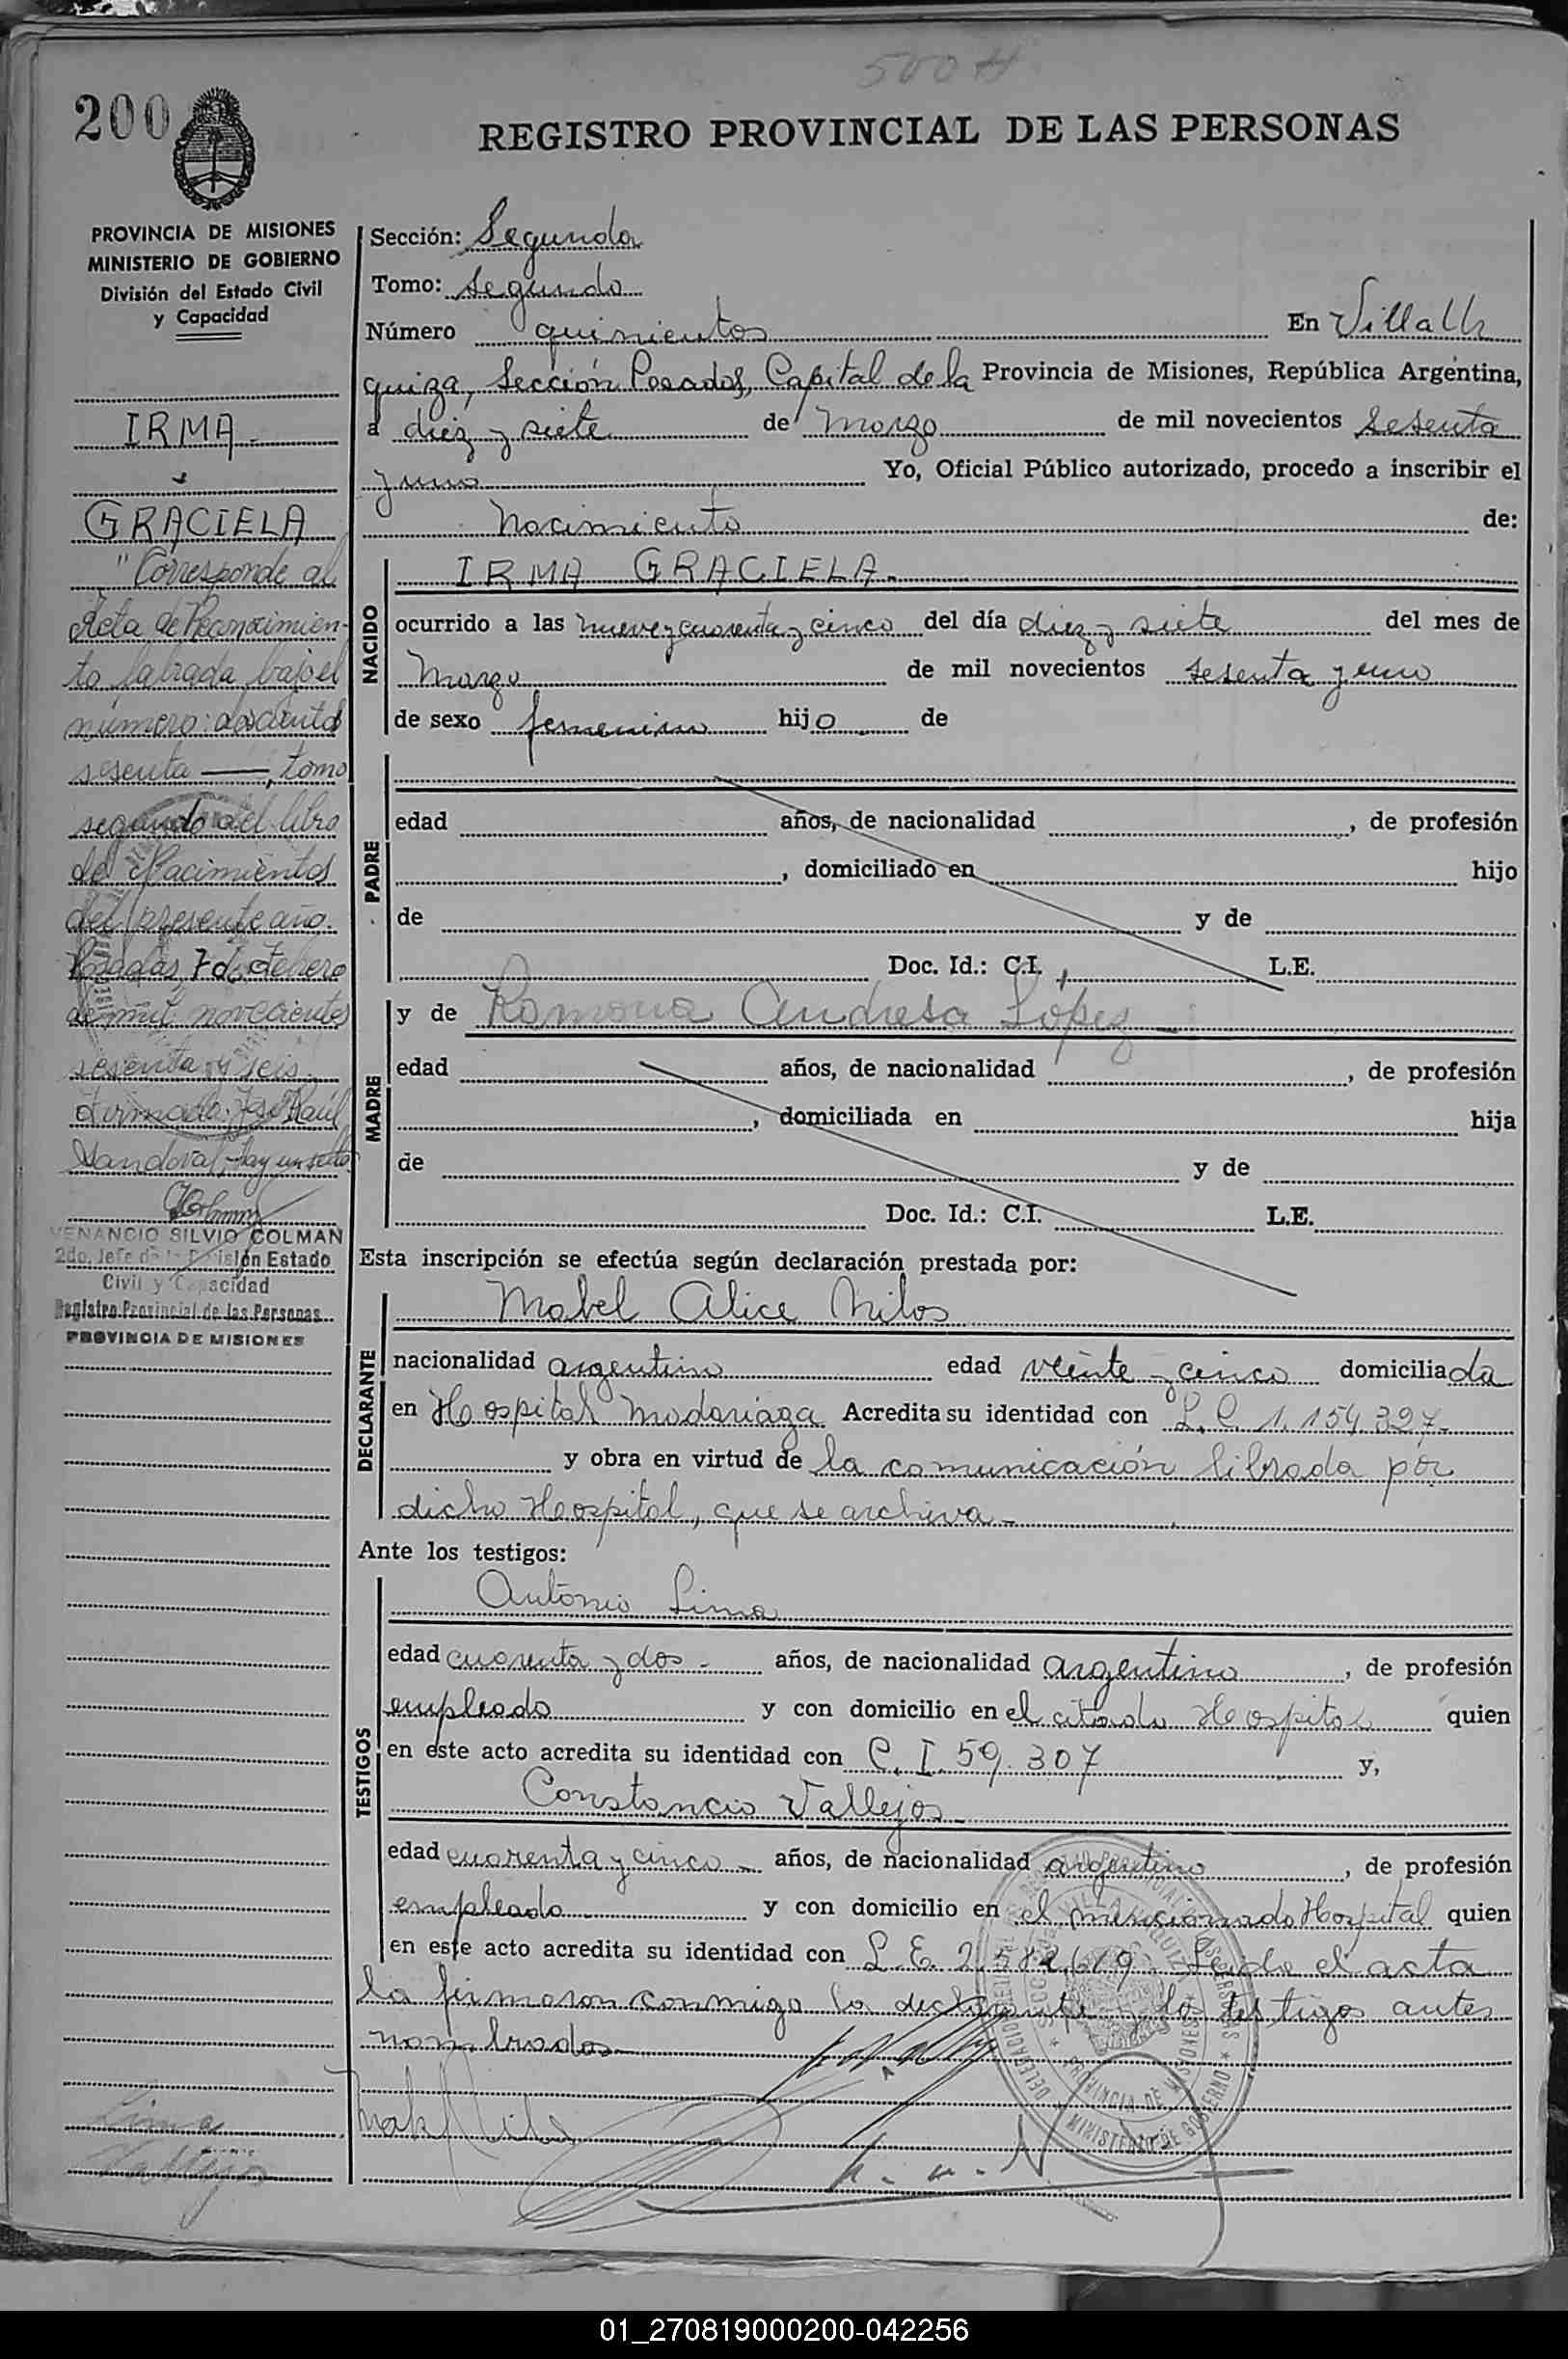 500 H
200
REGISTRO PROVINCIAL DE LAS PERSONAS
PROVINCIA DE MISIONES
MINISTERIO DE GOBIERNO
División del Estado Civil
y Capacidad
IRMA.
GRACIELA
"Corresponde al
Acta de Reconocimien-
to labrada bajo el
número: doscientos
sesenta —, tomo
segundo del libro
de Nacimientos
del presente año.
Posadas, 7 de Febrero
de mil novecientos
sesenta y seis.
Firmado: José Raúl
Sandoval, hay un sello
VENANCIO SILVIO COLMAN
2do. Jefe de la División Estado
Civil y Capacidad
Registro Provincial de las Personas
PROVINCIA DE MISIONES
Lima
Vallejo
Sección: Segunda
Tomo: Segundo
Número quinientos En Villa Ur
quiza, Sección Posadas, Capital de la Provincia de Misiones, República Argentina,
a diez y siete de Marzo de mil novecientos Sesenta
y uno Yo, Oficial Público autorizado, procedo a inscribir el
Nacimiento de:
NACIDO
IRMA GRACIELA.
ocurrido a las nueve y cuarenta y cinco del día diez y siete del mes de
Marzo de mil novecientos sesenta y uno
de sexo femenino hijo de
PADRE
edad años, de nacionalidad , de profesión
, domiciliado en hijo
de y de
Doc. Id.: C.I. L.E.
MADRE
y de Ramona Andresa Lopez
edad años, de nacionalidad , de profesión
, domiciliada en hija
de y de
Doc. Id.: C.I. L.E.
Esta inscripción se efectúa según declaración prestada por:
DECLARANTE
Mabel Alice Milos
nacionalidad argentina edad veinte y cinco domiciliada
en Hospital Madariaga Acredita su identidad con L.C. 1.154.327.
y obra en virtud de la comunicación librada por
dicho Hospital, que se archiva.
Ante los testigos:
TESTIGOS
Antonio Lima
edad cuarenta y dos años, de nacionalidad argentino , de profesión
empleado y con domicilio en el citado Hospital quien
en este acto acredita su identidad con C.I. 59.307 y,
Constancio Vallejos
edad cuarenta y cinco años, de nacionalidad argentino , de profesión
empleado y con domicilio en el mencionado Hospital quien
en este acto acredita su identidad con L.E. 2.582.619. Leida el acta
la firmaron conmigo la declarante y los testigos antes
nombrados
01_270819000200-042256